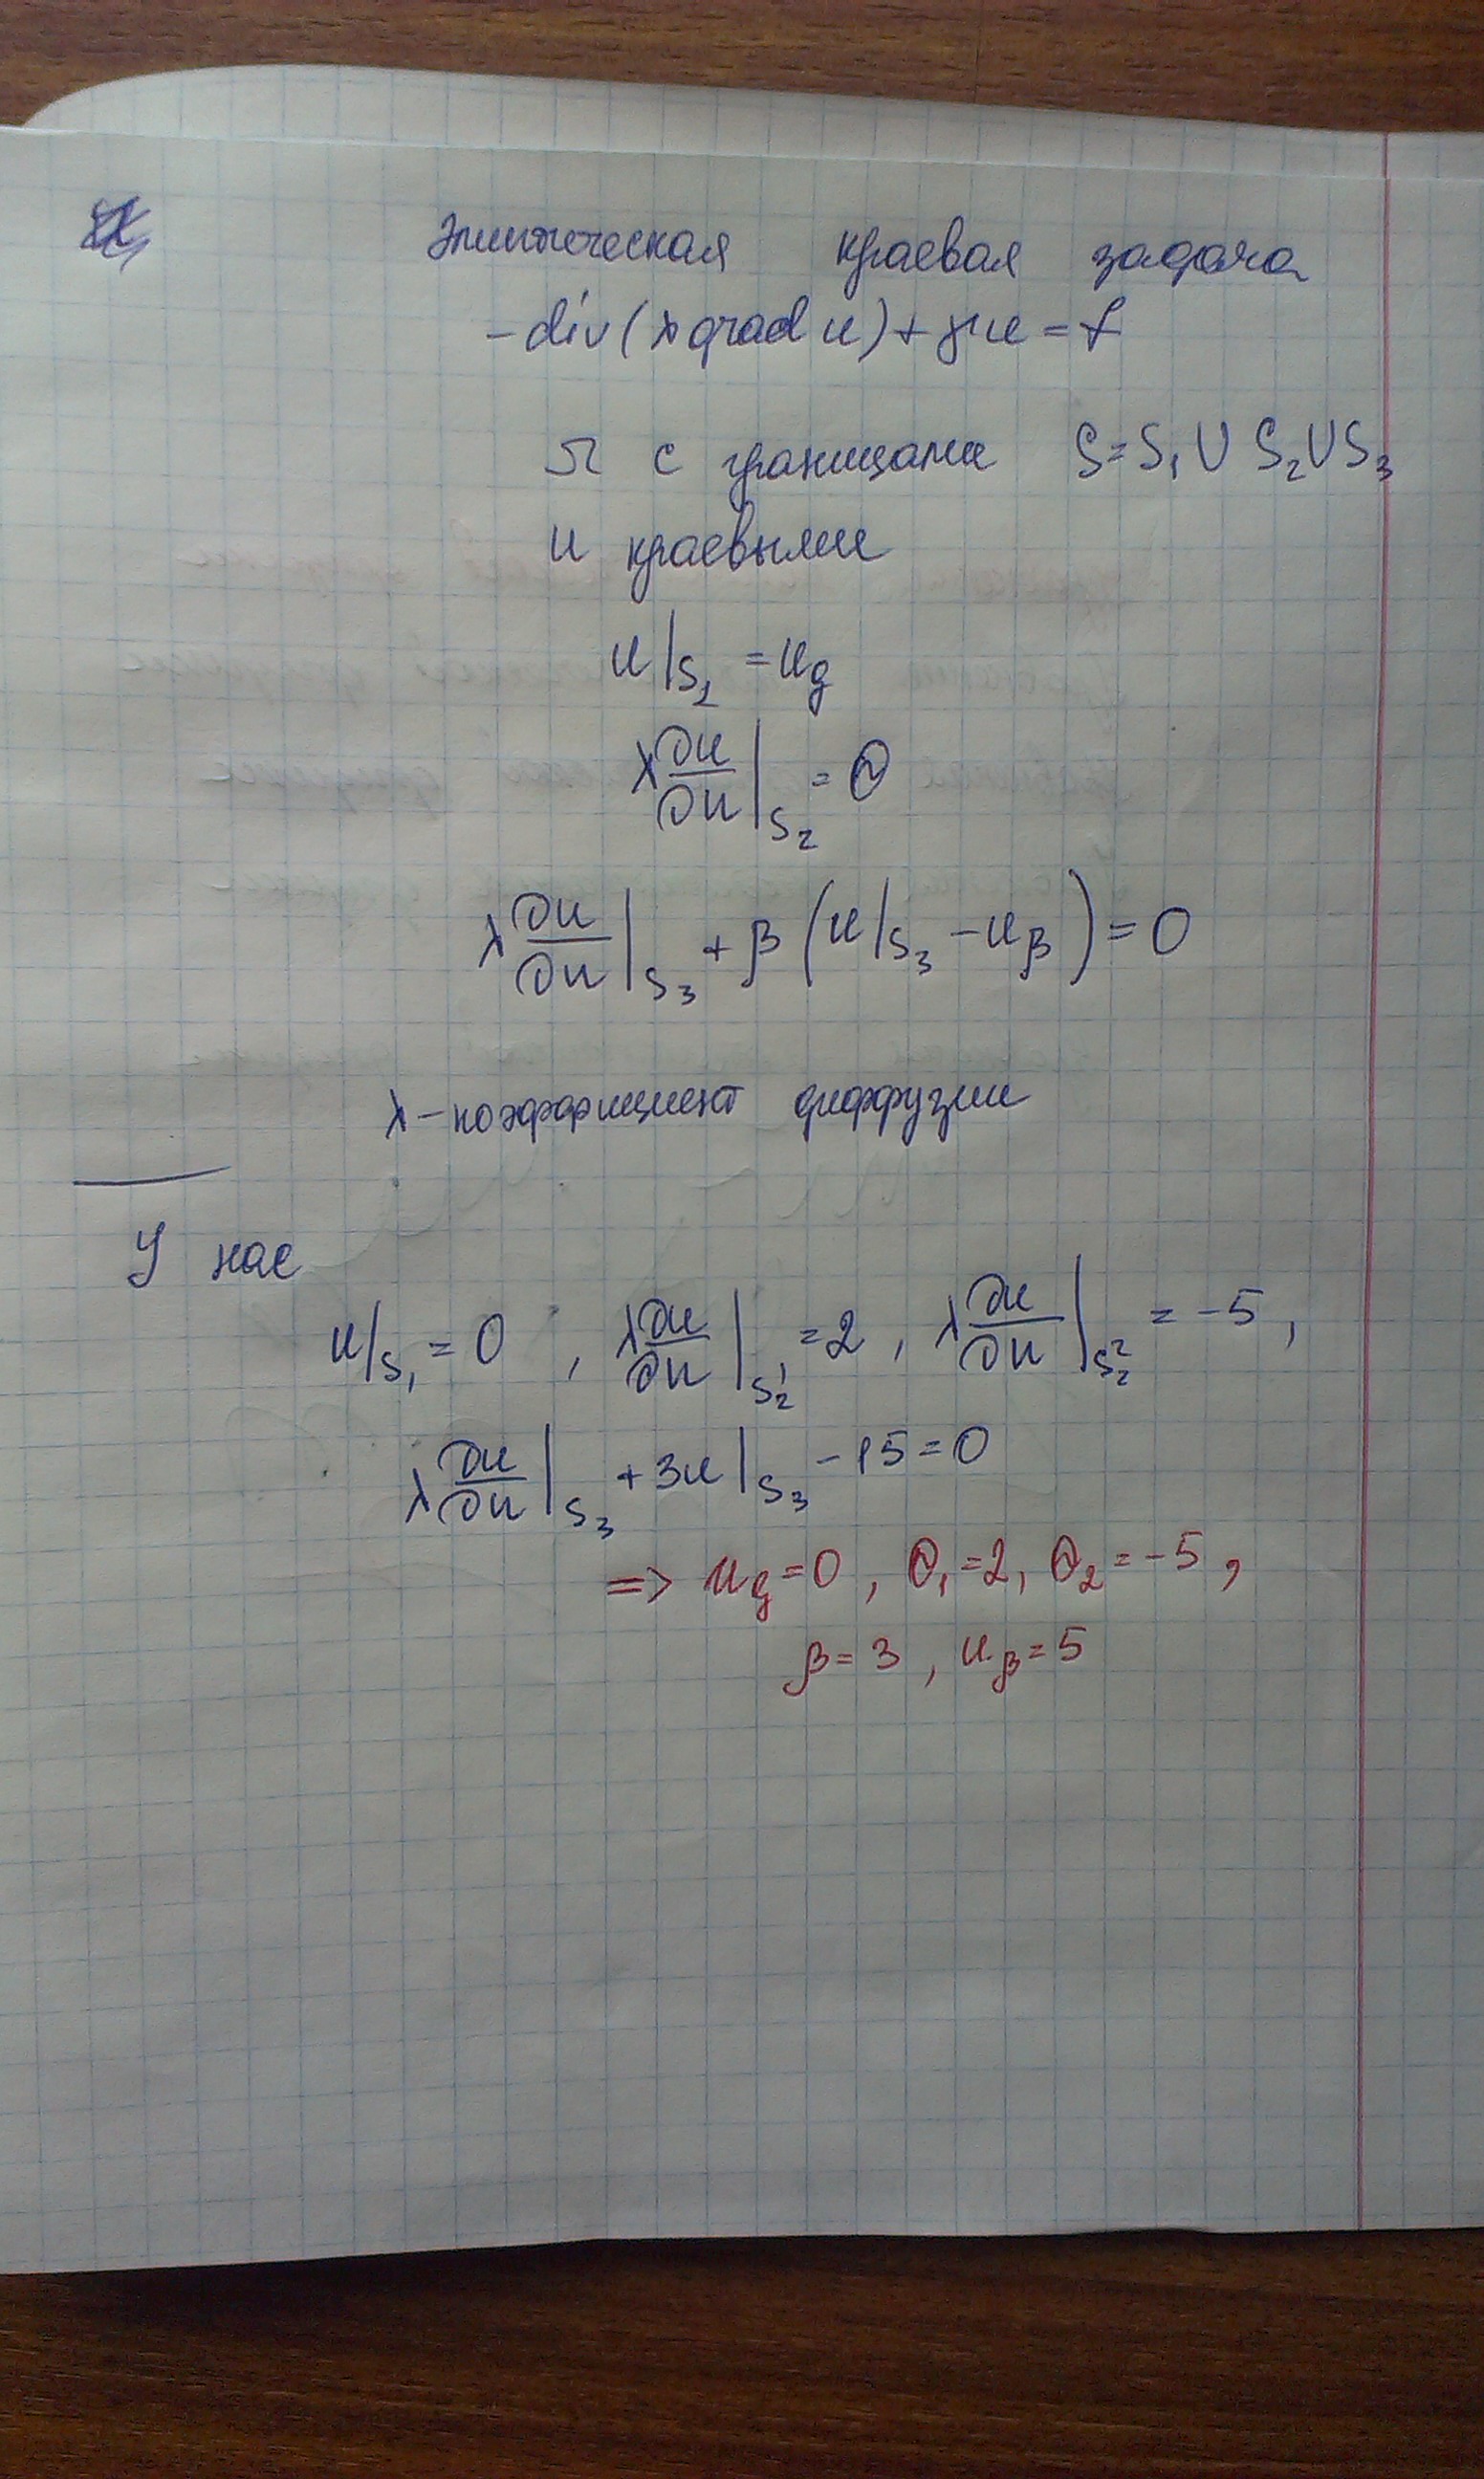 Эллиптическая краевая задача
-div(λ grad u) + γu = f
Ω с границами S = S₁ ∪ S₂ ∪ S₃
и краевыми
u|S₁ = u_g
λ ∂u/∂n |S₂ = θ
λ ∂u/∂n |S₃ + β (u|S₃ - u_β) = 0
λ - коэффициент диффузии
У нас
u|S₁ = 0 , λ ∂u/∂n |S₂¹ = 2 , λ ∂u/∂n |S₂² = -5 ,
λ ∂u/∂n |S₃ + 3u|S₃ - 15 = 0
=> u_g = 0 , θ₁ = 2 , θ₂ = -5 ,
β = 3 , u_β = 5